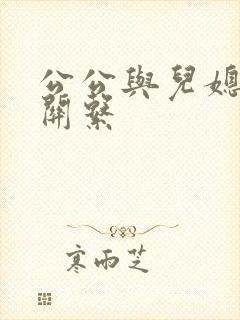 公公與兒媳
關繫
寒雨芝